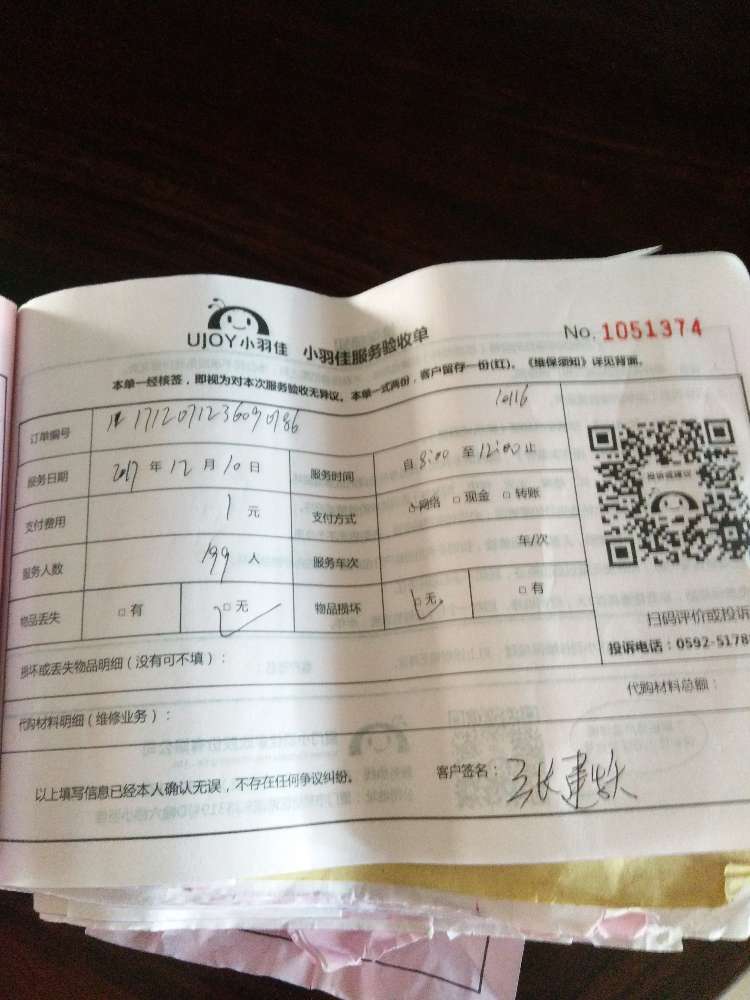 UJOY小羽佳 小羽佳服务验收单 No. 1051374
本单一经核签，即视为对本次服务验收无异议。本单一式两份，客户留存一份(红)。《维保须知》详见背面。
订单编号 1712071236090786 10116
服务日期 2017 年 12 月 10 日 服务时间 自 8:00 至 12:00 止
支付费用 1 元 支付方式 □网络 □现金 □转账
服务人数 199 人 服务车次 车/次
物品丢失 □有 □无 物品损坏 □无 □有
投诉或建议
扫码评价或投诉
投诉电话：0592-5178
损坏或丢失物品明细（没有可不填）：
代购材料明细（维修业务）： 代购材料总额：
以上填写信息已经本人确认无误，不存在任何争议纠纷。 客户签名：张建